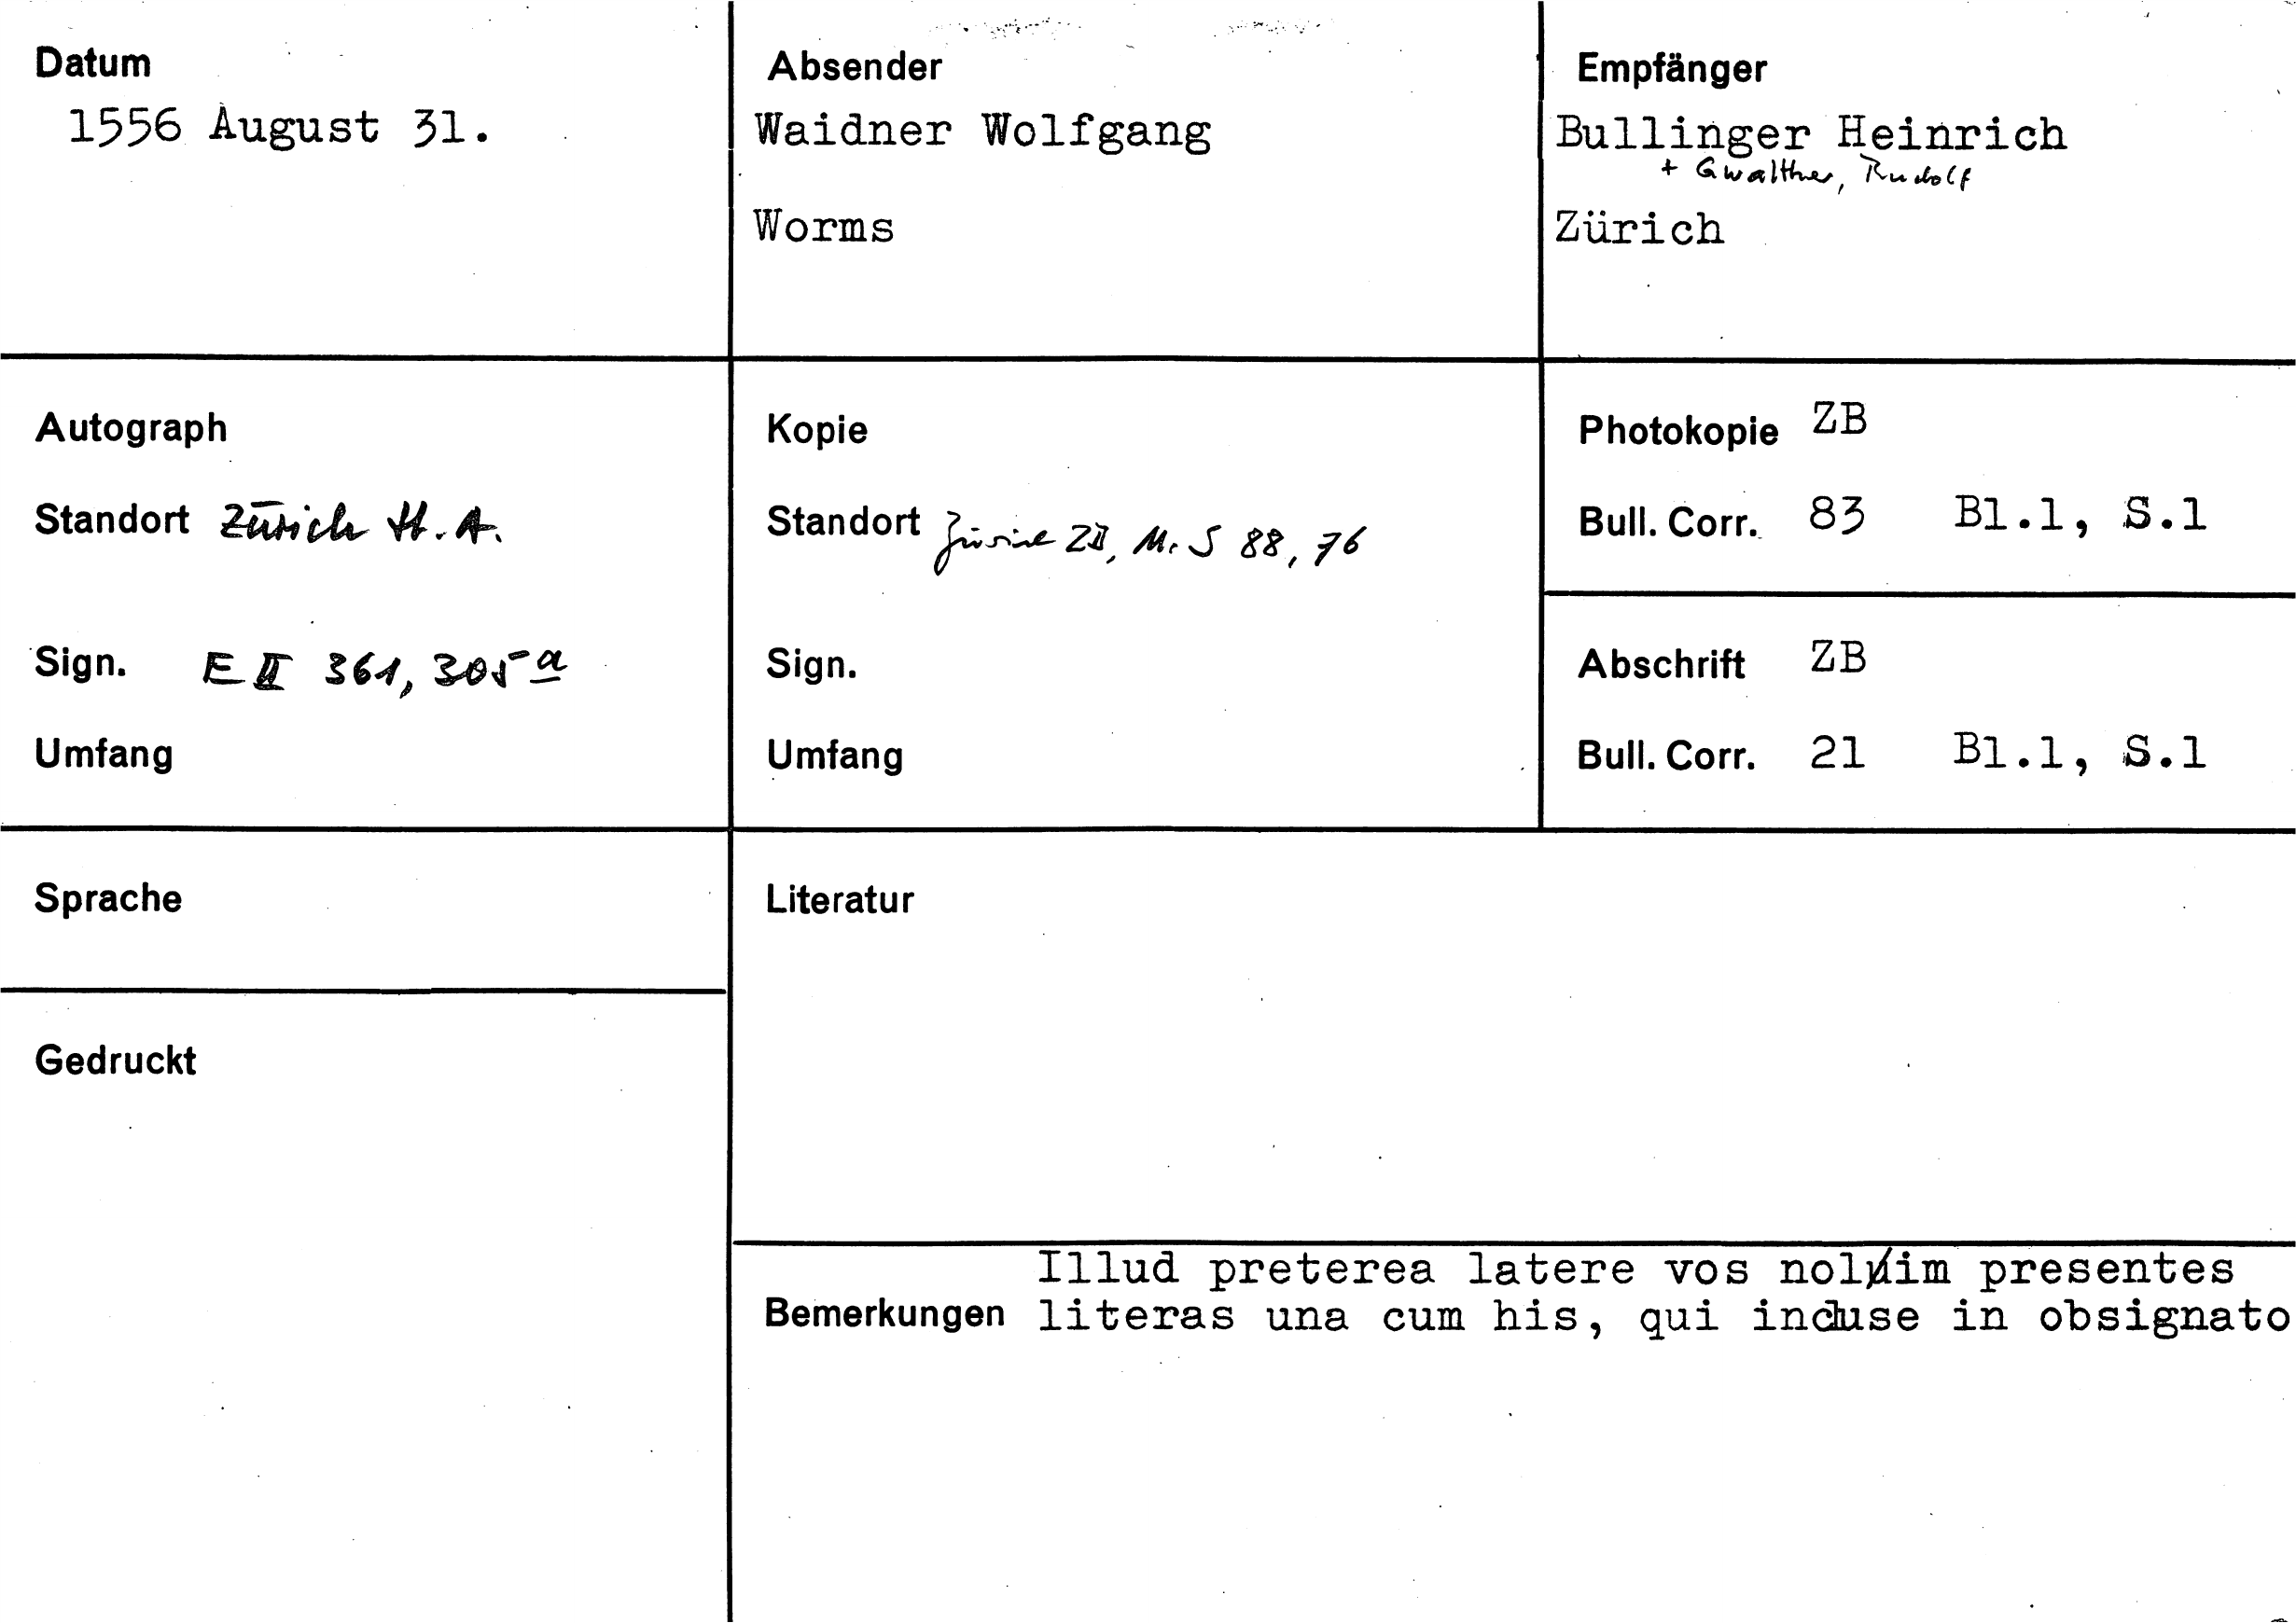 Datum
1556 August 31.
Absender
Waidner Wolfgang
Worms
Empfänger
Bullinger Heinrich
+ Gwalther, Rudolf
Zürich
Autograph
Standort Zürich St.A.
Sign. E II 361, 305a
Umfang
Kopie
Standort Zürich ZB, Ms S 88, 76
Sign.
Umfang
Photokopie ZB
Bull. Corr. 83 Bl.1, S.1
Abschrift ZB
Bull. Corr. 21 Bl.1, S.1
Sprache
Gedruckt
Literatur
Illud preterea latere vos nolim presentes
Bemerkungen literas una cum his, qui incluse in obsignato